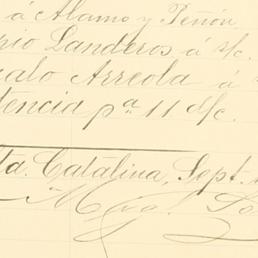 á Alamo y Peñón
rio Landeros á s/c.
calo Arreola á s
tencia pª 11 d/c.
ta. Catalina, Sept.